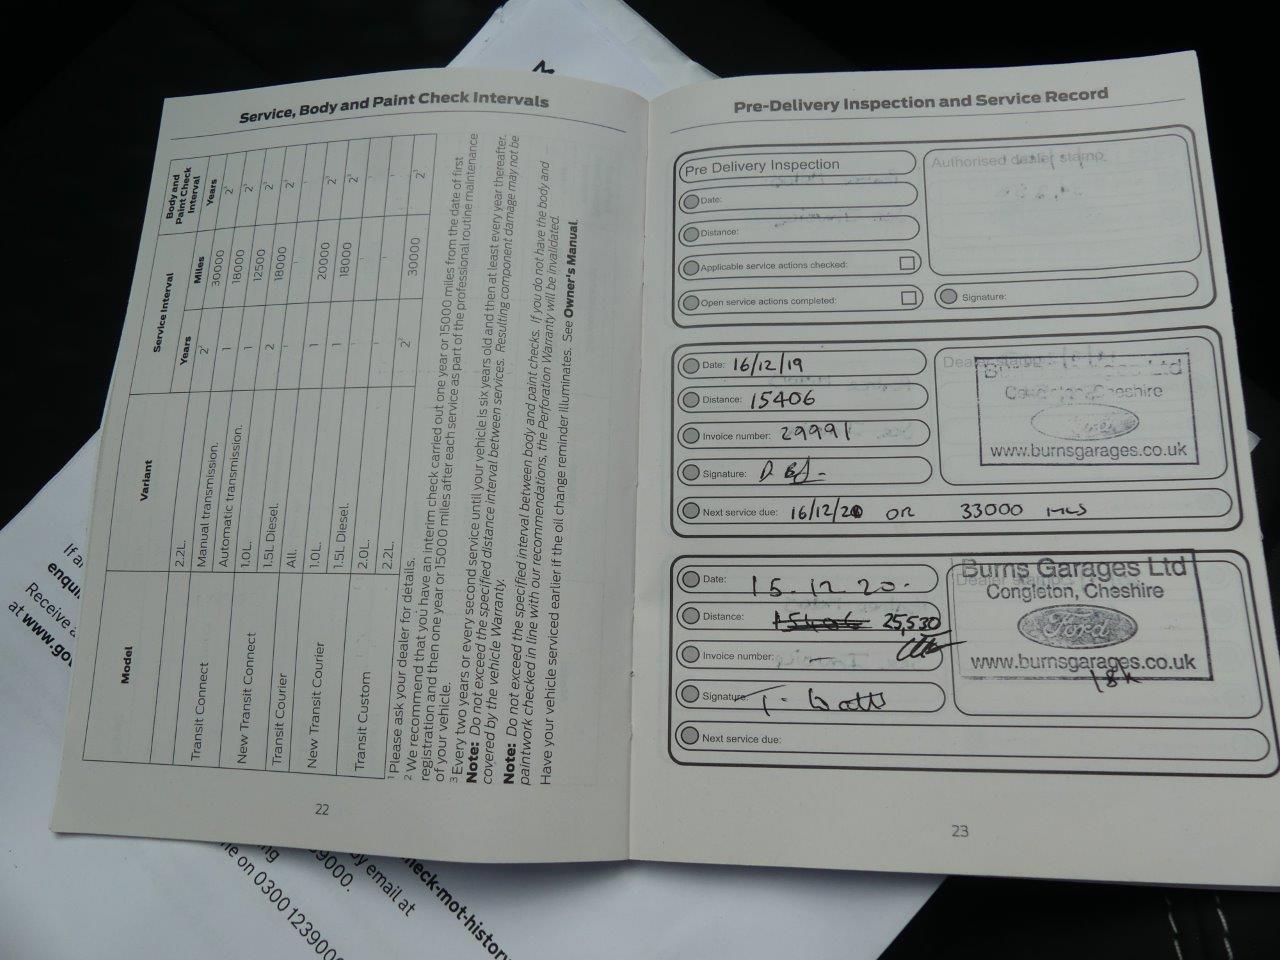 Service, Body and Paint Check Intervals
Model
Variant
Service Interval
Body and
Paint Check
Interval
Years
Miles
Years
2.2L.
Transit Connect
Manual transmission.
2¹
30000
2³
Automatic transmission.
1
18000
2³
New Transit Connect
1.0L.
1
12500
2³
1.5L Diesel.
2
18000
2³
Transit Courier
All.
-
-
-
New Transit Courier
1.0L.
1
20000
2³
1.5L Diesel.
1
18000
2³
Transit Custom
2.0L.
-
-
-
2.2L.
2²
30000
2³
¹ Please ask your dealer for details.
² We recommend that you have an interim check carried out one year or 15000 miles from the date of first
registration and then one year or 15000 miles after each service as part of the professional routine maintenance
of your vehicle.
³ Every two years or every second service until your vehicle is six years old and then at least every year thereafter.
Note: Do not exceed the specified distance interval between services. Resulting component damage may not be
covered by the vehicle Warranty.
Note: Do not exceed the specified interval between body and paint checks. If you do not have the body and
paintwork checked in line with our recommendations, the Perforation Warranty will be invalidated.
Have your vehicle serviced earlier if the oil change reminder illuminates. See Owner's Manual.
22
Pre-Delivery Inspection and Service Record
Pre Delivery Inspection
Authorised dealer stamp:
Date:
Distance:
Applicable service actions checked:
Open service actions completed:
Signature:
Date: 16/12/19
Distance: 15406
Invoice number: 29991
Signature:
Next service due: 16/12/20 OR 33000 MLS
Dealer stamp:
Burns Garages Ltd
Congleton, Cheshire
Ford
www.burnsgarages.co.uk
Date: 15.12.20.
Distance: 15406 25,530
Invoice number:
Signature: T. Watts
Next service due:
Dealer stamp:
Burns Garages Ltd
Congleton, Cheshire
Ford
www.burnsgarages.co.uk
18k
23
If
enqui
Receive
at www.go
ne on 0300 1239000
9000.
by email at
heck-mot-history